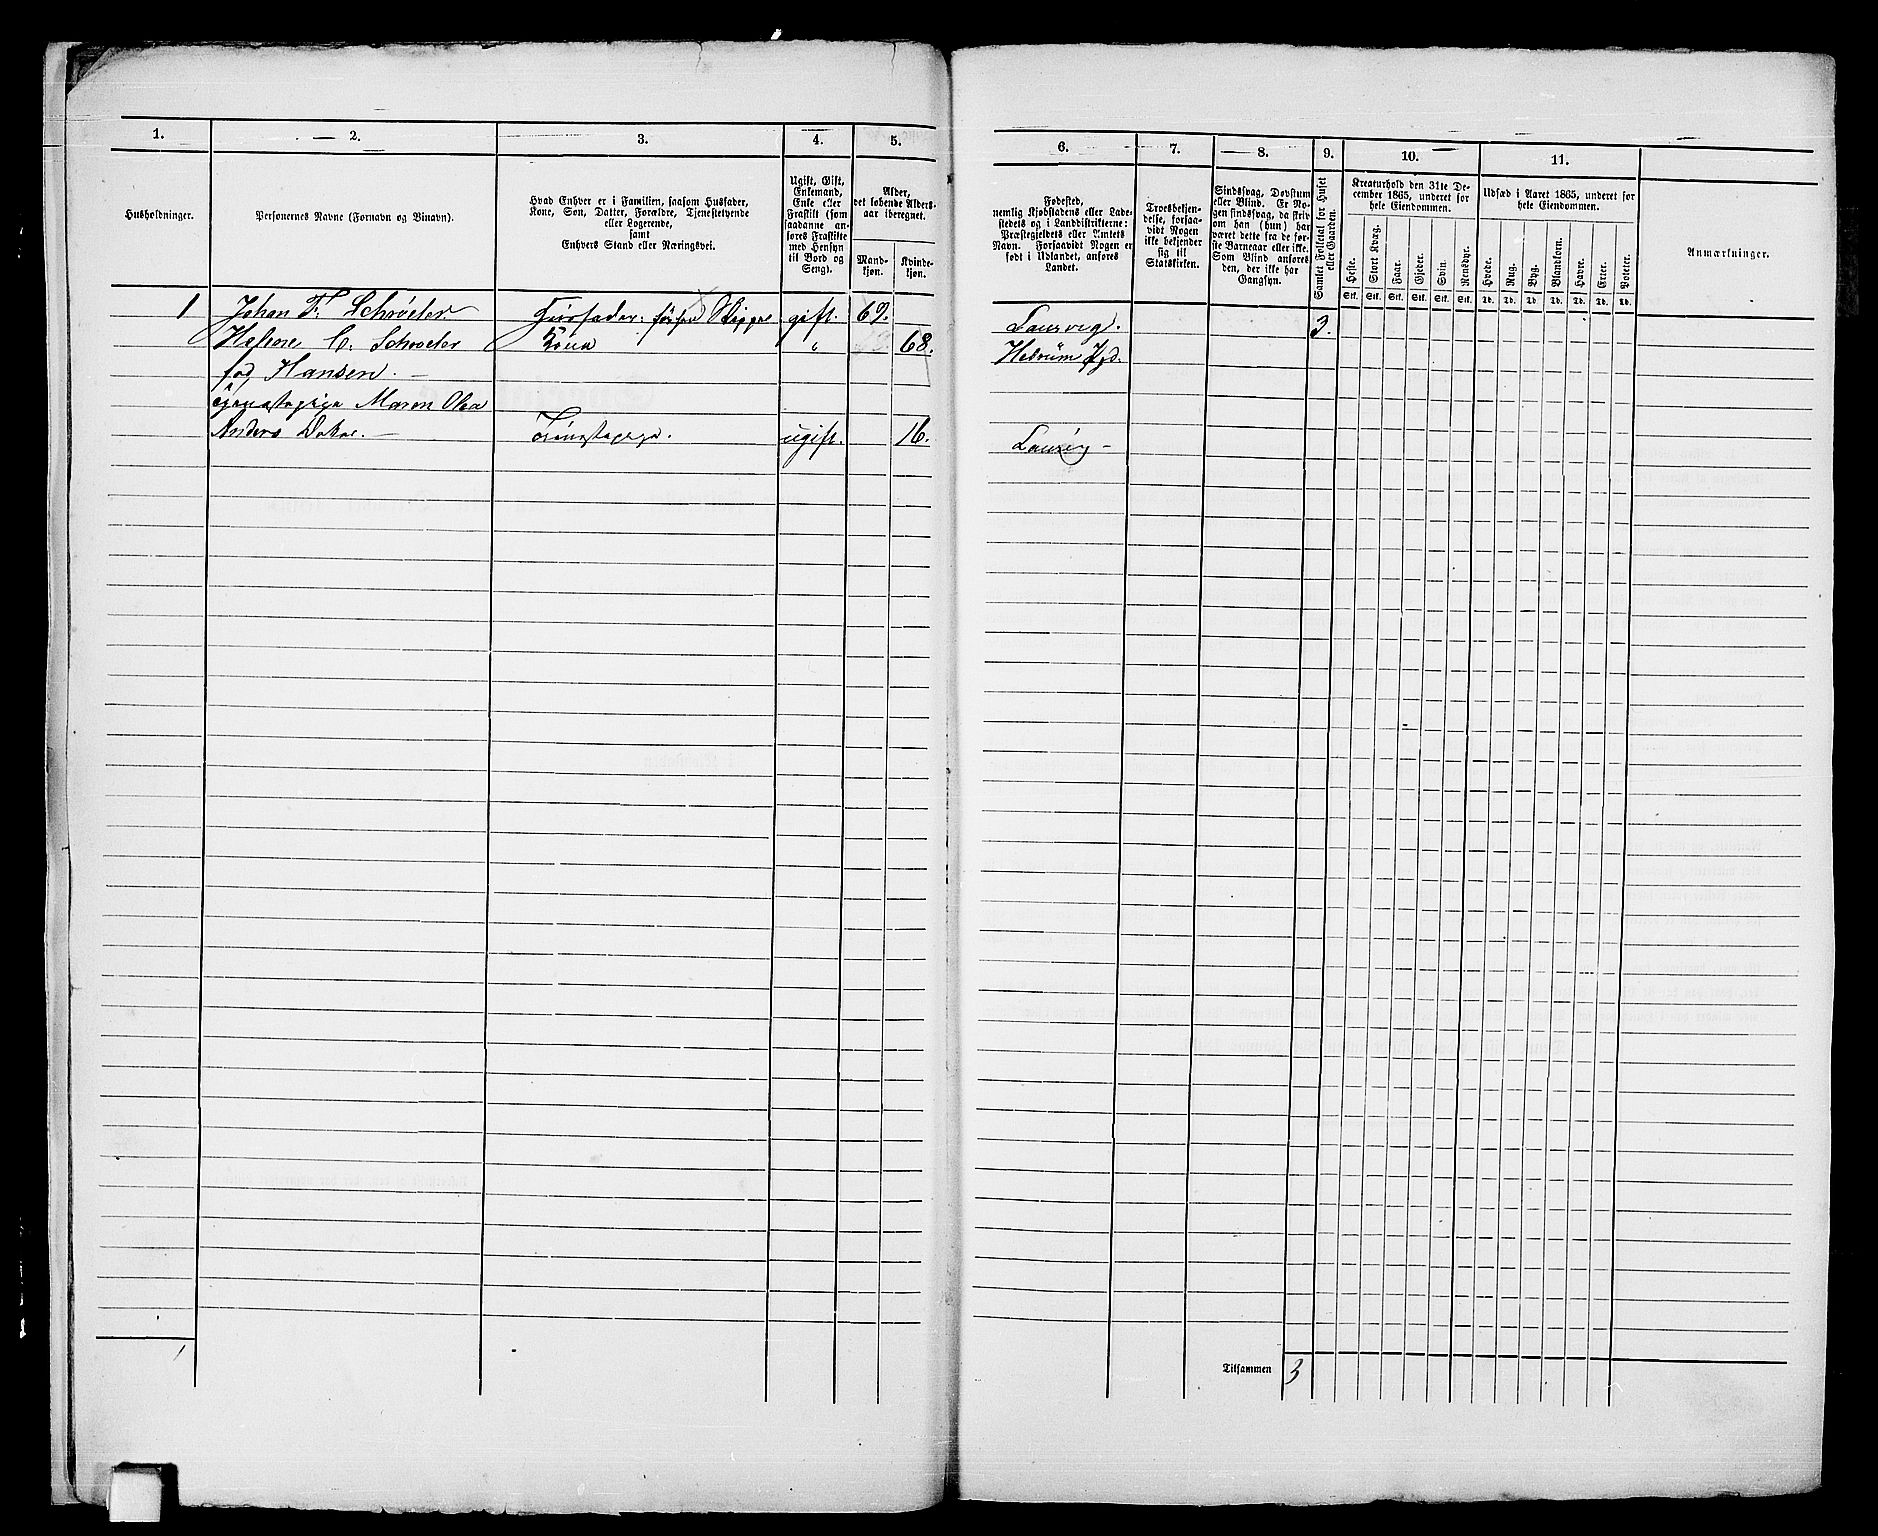 1. 2. 3. 4. 5.
Husholdninger.
Personernes Navne (Fornavn og Binavn).
Hvad Enhver er i Familien, saasom Husfader,
Kone, Søn, Datter, Forældre, Tjenestetyende
eller Logerende,
samt
Enhvers Stand eller Næringsvei.
Ugift, Gift,
Enkemand,
Enke eller
Fraskilt (som
saadanne an-
føres Fraskilte
med Hensyn
til Bord og
Seng).
Alder,
det løbende Alders-
aar iberegnet.
Mand-
kjøn.
Kvinde-
kjøn.
1 Johan F. Schrøeter Huusfader: Skipper gift. 69.
Helene C. Schroeter Kone " 68.
fød Hansen. —
Tjenestepige Maren Olea
Anders Datter. — Tjenestepige. ugift. 16.
6. 7. 8. 9. 10. 11.
Fødested,
nemlig Kjøbstadens eller Lade-
stedets og i Landdistrikterne:
Præstegjeldets eller Amtets
Navn. Forsaavidt Nogen er
født i Udlandet, anføres
Landet.
Troesbekjen-
delse, forsaa-
vidt Nogen
ikke bekjender
sig til
Statskirken.
Sindssvag, Døvstum
eller Blind. Er No-
gen sindssvag, da skriv
om han (hun) har
været dette fra de før-
ste Barneaar eller ikke.
Som Blind anføres
den, der ikke har
Gangsyn.
Samlet Folketal for Huset
eller Gaarden.
Kreaturhold den 31te De-
cember 1865, underet for
hele Eiendommen.
Heste. Stort Kvæg. Faar. Gjeder. Svin. Rensdyr.
Stk. Stk. Stk. Stk. Stk. Stk.
Udsæd i Aaret 1865, underet for
hele Eiendommen.
Hvede. Rug. Byg. Blandkorn. Havre. Erter. Poteter.
Td. Td. Td. Td. Td. Td. Td.
Anmærkninger.
Laurvig. 3.
Hedrum Pgd.
Laurvig —
Tilsammen 3